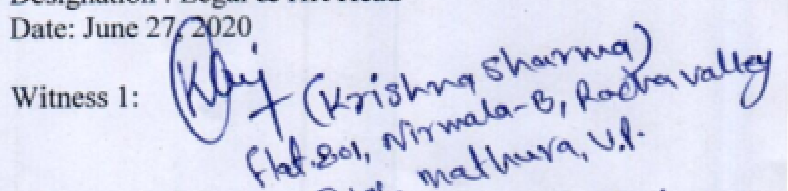 Date: June 27, 2020
Witness 1:
(Krishna Sharma)
Flat.801, Nirmala-B, Radha valley
Mathura, U.P.